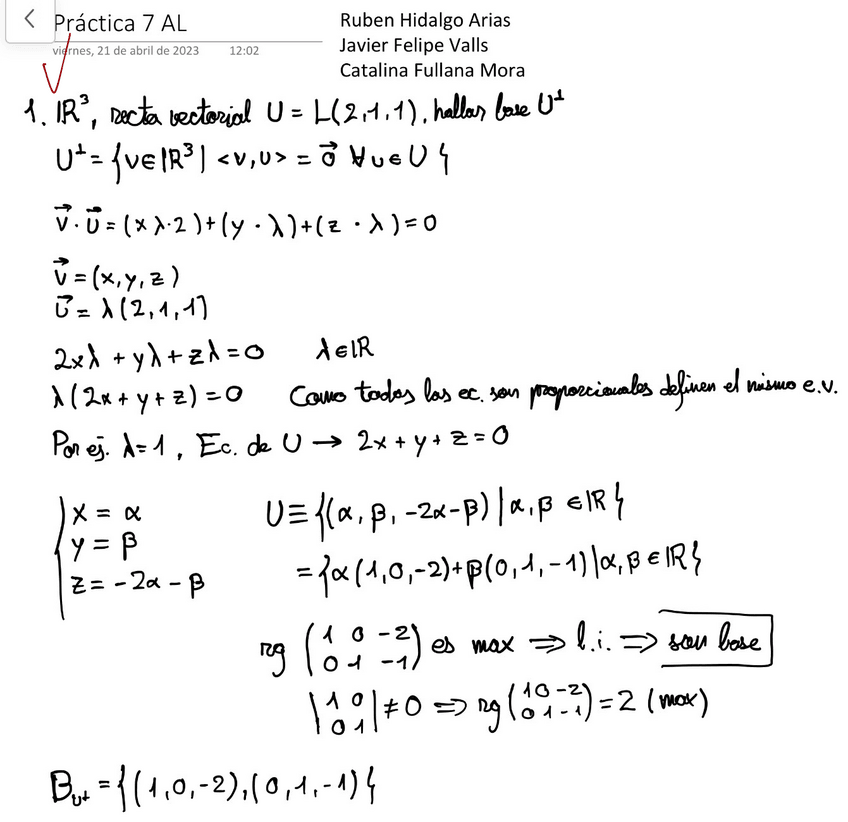 Práctica 7 AL
viernes, 21 de abril de 2023 12:02
Ruben Hidalgo Arias
Javier Felipe Valls
Catalina Fullana Mora
1. ℝ³, recta vectorial U = L(2,1,1), hallar base U^⊥
U^⊥ = {v∈ℝ³ | <v,u> = 0⃗ ∀u∈U}
v⃗ · u⃗ = (xλ·2)+(y·λ)+(z·λ)=0
v⃗ = (x,y,z)
u⃗ = λ(2,1,1)
2xλ + yλ + zλ = 0 λ∈ℝ
λ(2x+y+z)=0 Como todas las ec. son proporcionales definen el mismo e.v.
Por ej. λ=1, Ec. de U → 2x+y+z=0
x = α
y = β
z = -2α - β
U ≡ {(α, β, -2α-β) | α,β ∈ℝ}
= {α(1,0,-2)+β(0,1,-1) | α,β∈ℝ}
rg (1 0 -2
0 1 -1) es max ⇒ l.i. ⇒ son base
|1 0
0 1| ≠ 0 ⇒ rg (1 0 -2
0 1 -1) = 2 (max)
B_U^⊥ = {(1,0,-2),(0,1,-1)}